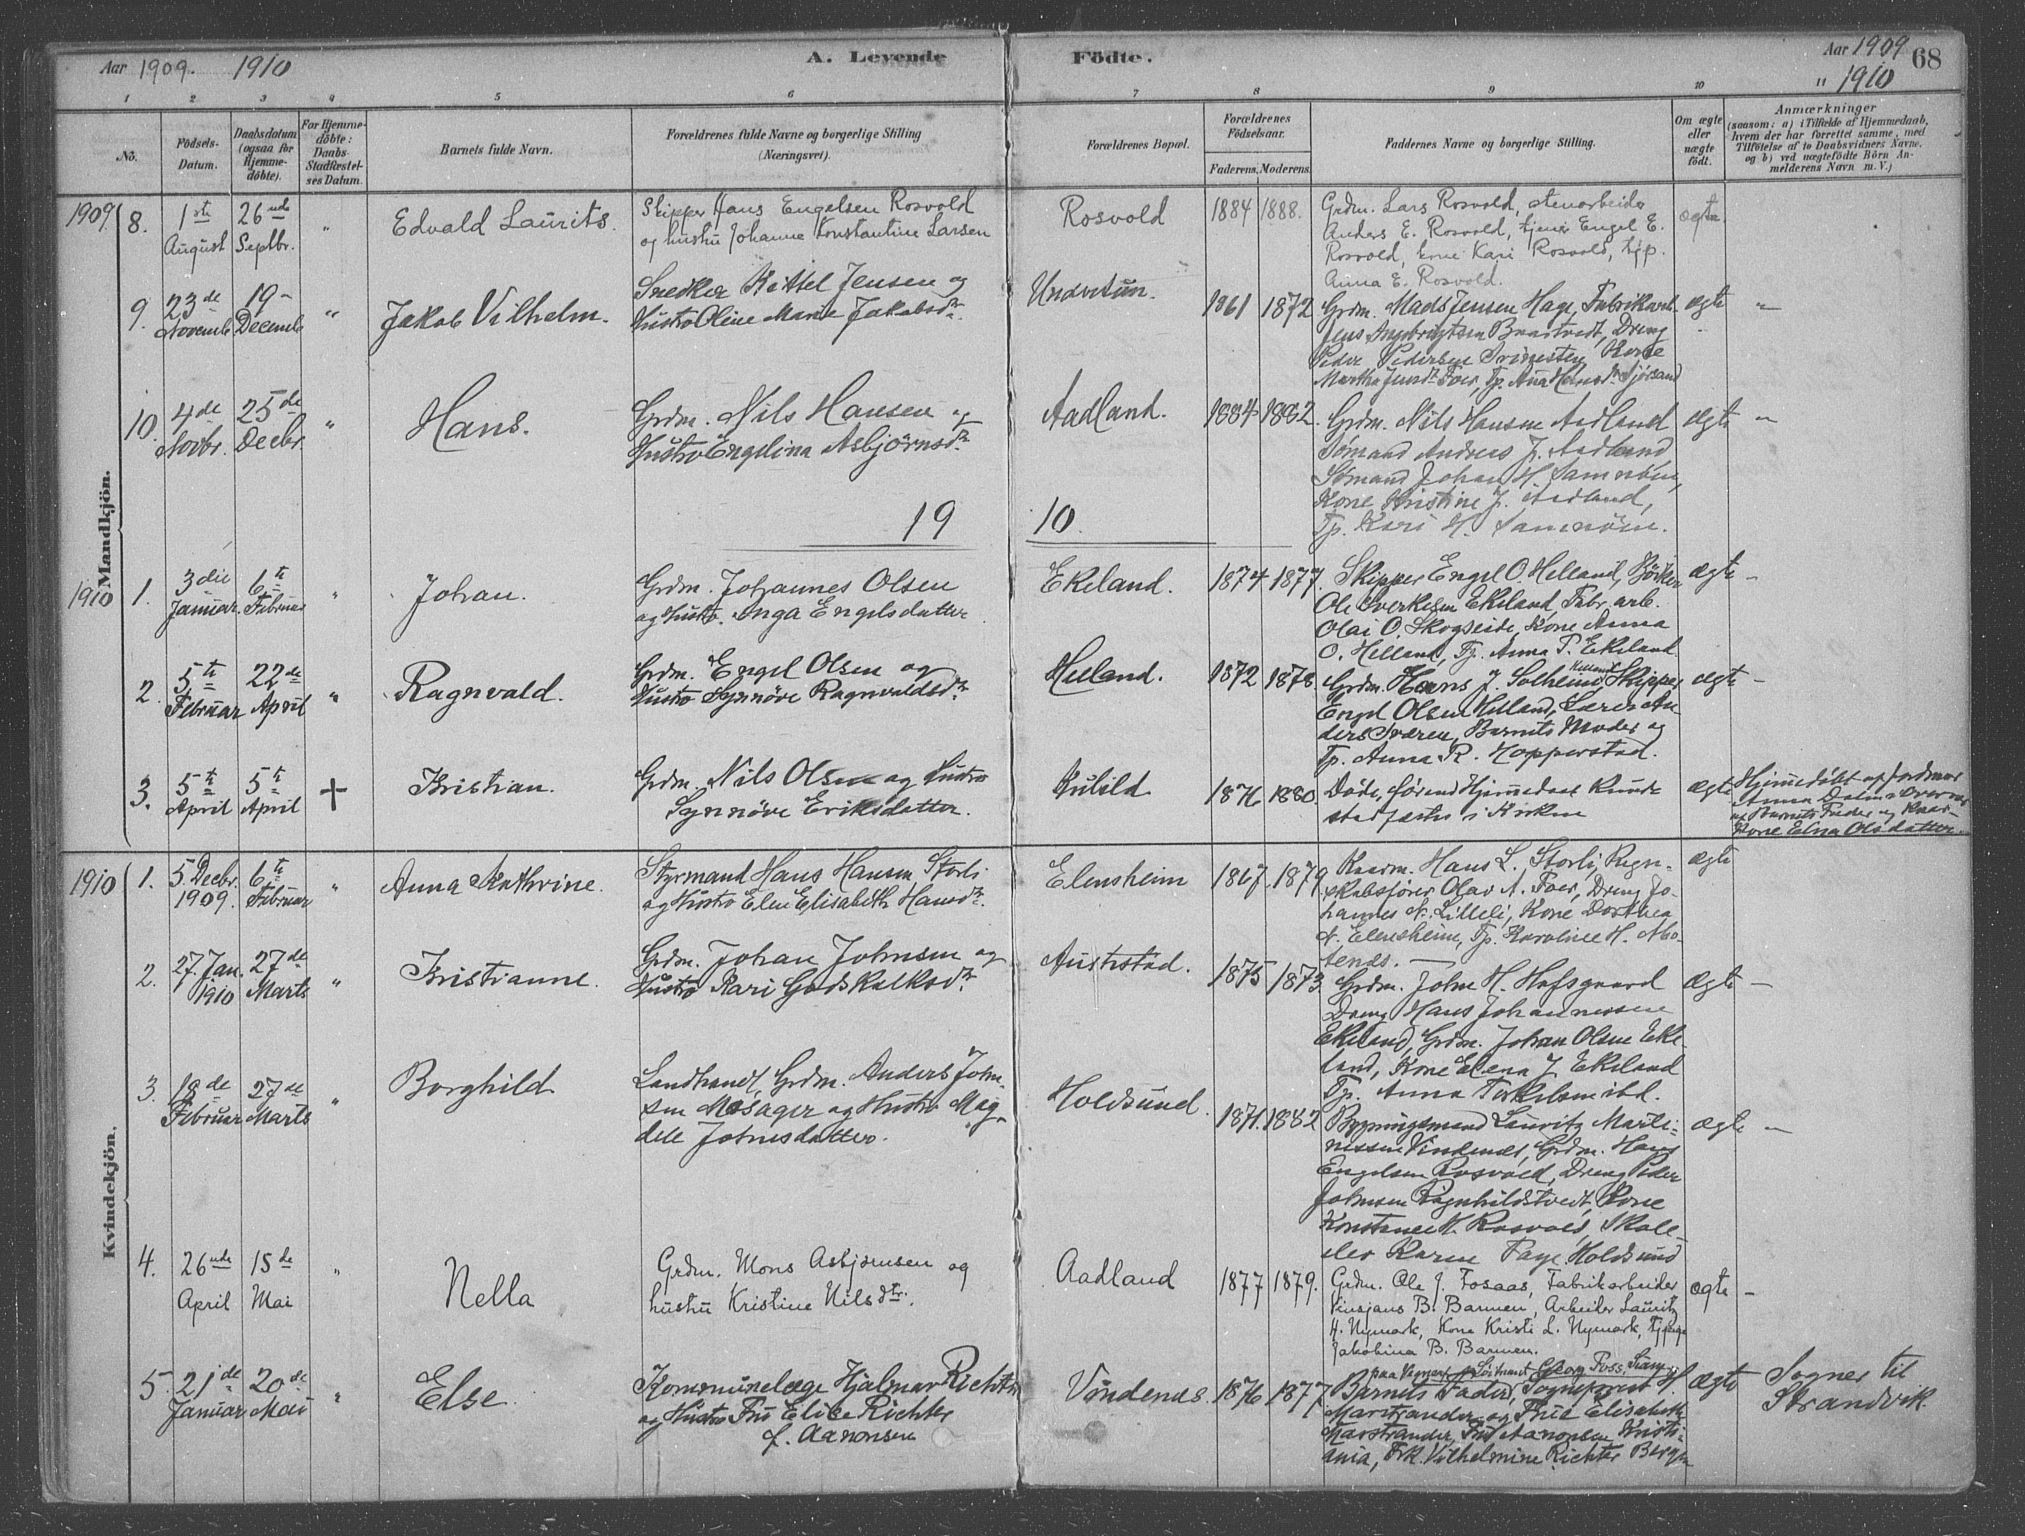 Aar 1909. 1910
A. Levende Födte.
Aar 1909 68
1910
1 2 3 4 5 6 7 8 9 10 11
No.
Födsels-Datum.
Daabsdatum (ogsaa for Hjemme-döbte).
For Hjemme-döbte: Daabs-Stadfæstel-ses Datum.
Barnets fulde Navn.
Forældrenes fulde Navne og borgerlige Stilling
(Næringsvei).
Forældrenes Bopæl.
Forældrenes Födselsaar.
Faderens. Moderens.
Faddernes Navne og borgerlige Stilling.
Om ægte eller uægte födt.
Anmærkninger
(saasom: a) i Tilfælde af Hjemmedaab,
hvem der har forrettet samme, med
Tilföielse af to Daabsvidners Navne.
og b) ved uægtefödte Börn An-
melderens Navn m. V.)
Mandkjön.
1909. 8. 1ste August 26nde Septbr. " Edvald Laurits.
Skipper Hans Engelsen Rosvold
og hustru Johanne Konstantine Larsen
Rosvold 1884 1888.
Grdm. Lars Rosvold, stenarbeider
Anders E. Rosvold, tjener Engel E.
Rosvold, kone Kari Rosvold, tjp.
Anna E. Rosvold.
ægte.
9. 23de Novemb. 19- Decemb. " Jakob Vilhelm.
Snedker Kittel Jensen og
Hustro Oline Marie Jakobsdtr.
Undertun. 1861 1872
Grdm. Mads Jensen Hage, Fabrikarb.
Jens Baartvedt, Dreng
Peder Pedersen Svinesten, Kone
Martha Foer, Tp. Ana
ægte "
10. 4de Novbr. 25de Decbr. " Hans.
Grdm. Nils Hansen og
Hustro Engelina Asbjörnsdtr.
Aadland. 1884 1882.
Grdm. Nils Hansen Aadland
Sömand Andreas J. Aadland
Sömand Johan H. Samnöen,
Kone Kristine J. Aadland,
Tp. Kari H. Samnöen.
ægte "
19 10
1910 1. 3die Januar. 6te Februar " Johan.
Grdm. Johannes Olsen
og Hustro. Inga Engelsdatter
Ekeland. 1874 1877.
Skipper Engel O. Helland,
Ole Sverkesen Ekeland, Fabr. arb.
Olai O. Skogseide, Kone Anna
O. Helland, Tp. Anna T. Ekeland
ægte -
2. 5te Februar 22de April " Ragnvald.
Grdm. Engel Olsen og
Hustro Synnöve Ragnvaldsdtr.
Helland. 1872 1878.
Grdm. Hans J. Solheim, Helland, Skipper
Engel Olsen Helland, Lærer An-
ders Sværen, Barnets Moder og
Tp. Anna R. Hopperstad.
ægte -
3. 5te April 5te April + Kristian.
Grdm. Nils Olsen og Hustro
Synnöve Eriksdatter.
Kulild 1876 1880.
Döde, förend Hjemmedaab kunde
stadfæstes i Kirken
ægte
Hjemmedöbt af Jordmor
Anna
af Barnets Fader og Kaar-
kone Elna Olsdatter.
Kvindekjön.
1910 1. 5 Decbr. 1909. 6te Februar " Anna Kathrine.
Styrmand Hans Hansen Storli
og Hustro Elen Elisabeth Hansdtr.
Elensheim 1867. 1879.
Kaarm. Hans L. Storli, Regn-
skabsförer Olav A. Foer, Dreng Jo-
hannes N. Lilleli, Kone Dorthea
N. Elensheim, Tp. Karoline H. Mo-
ænæs.
ægte
2. 27. Jan. 1910 27de Marts " Kristianne.
Grdm. Johan Johnsen og
Hustro Kari Godskalksdtr.
Austestad. 1875 1873.
Grdm. John H. Hafsgaard
Dreng Hans Johannessen
Ekeland, Grdm. Johan Olsen Eke-
land, Kone Elena J. Ekeland
Tp. Anna Torkelsen ibd.
ægte -
3. 18de Februar 27de Marts " Borghild
Landhandl. Grdm. Anders John-
sen Mosager og Hustro Mag-
dele Johnesdatter.
Holdsund. 1871. 1882
Bygningsmand Lauritz Marti-
nissen Vindenes, Grdm. Hans
Engelsen Rosvold, Dreng Peder
Johnsen Ragnhildstvedt, Kone
Konstanse H. Rosvold, Skole-
elev Karen Faye Holdsund
ægte -
4. 26nde April 15de Mai " Nella
Grdm. Mons Asbjörnsen og
hustru Kristine Nilsdtr.
Aadland 1877 1879.
Grdm. Ole J. Fosaas, Fabrikarbeider
Vinsjans B. Barmen, Arbeider Lauritz
H. Nymark, Kone Kristi L. Nymark, tjpige
Jakobina B. Barmen.
ægte -
5. 21de Januar 20de Mai " Else
Kommunelæge Hjalmar Richter
og Hustro Fru Elise Richter
f. Aanonsen
Vindenes. 1876 1877
Löitnant Georg Foss,
Barnets Fader, Sogneprest H.
Marstrander og Frue Elisabeth
Marstrander, Frk Aanonsen Kristi-
ania, Frk. Vilhelmine Richter Bergen
ægte
Sogner til
Strandvik.